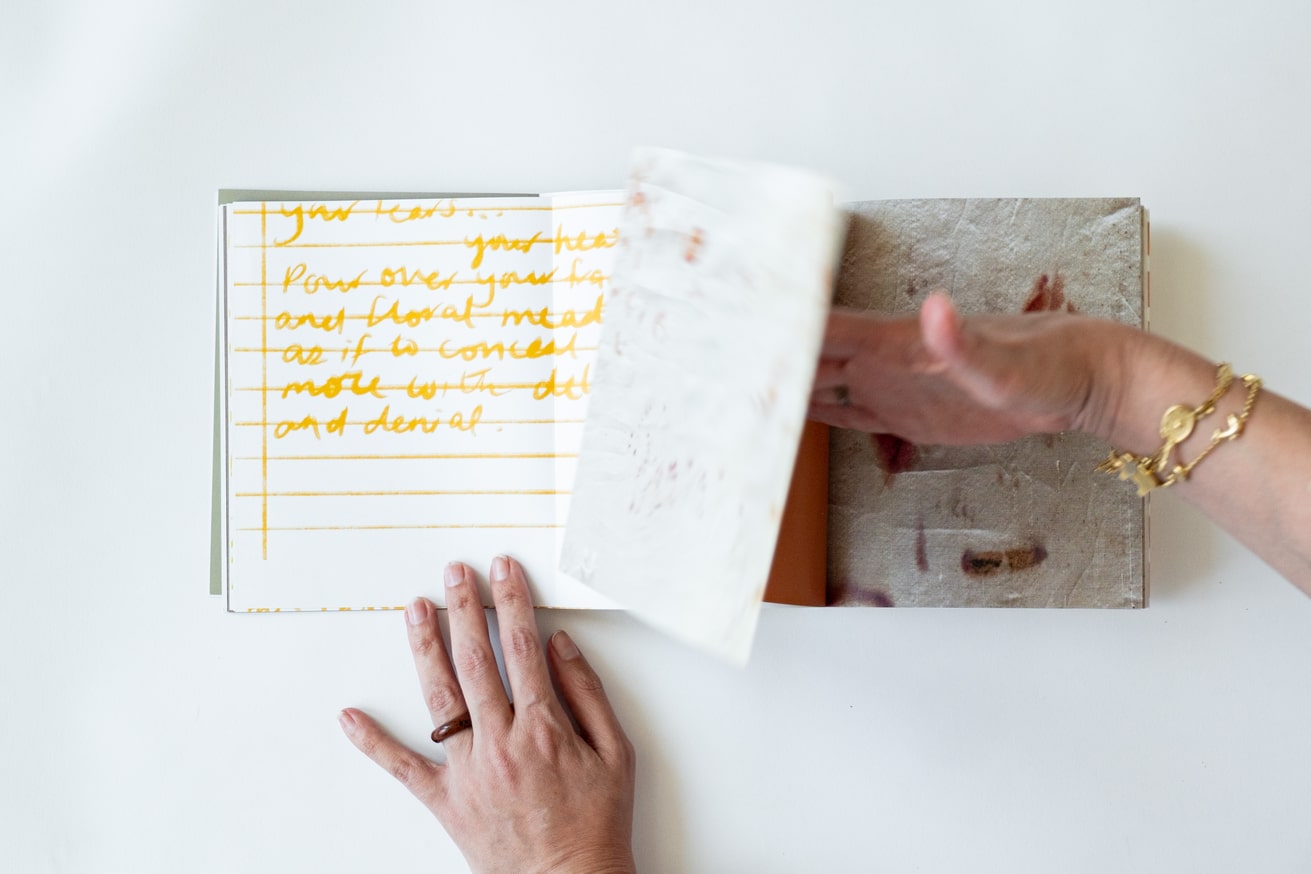 your tears...
your hea
Pour over your fra
and floral mead
as if to conceal
more with del
and denial.